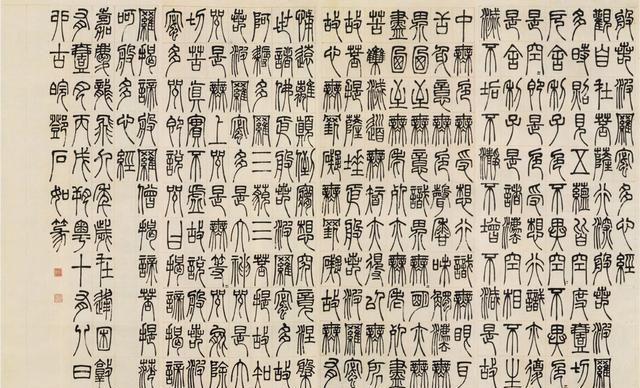 般若波羅蜜多心經
觀自在菩薩行深般若波羅
多時照見五蘊皆空度壹切
厄舍利子色不異空空不異
是空空即是色受想行識亦
是舍利子是諸法空相不生
滅不垢不淨不增不滅是故
中無色無受想行識無眼耳
舌身意無色聲香味觸法無
界乃至無意識界無無明亦
盡乃至無老死亦無老死盡
苦集滅道無智亦無得以無所
故菩提薩埵依般若波羅
故心無罣礙無罣礙故無有
怖遠離顛倒夢想究竟涅槃
世諸佛依般若波羅蜜多故
阿耨多羅三藐三菩提故知
故般若波羅蜜多是大神
咒是無上咒是無
切苦真實不虛故說般若波
蜜多咒即說咒曰揭諦揭諦
羅揭諦般羅僧揭諦菩提薩
呵般若多心經
嘉慶龍飛九年歲在逢困敦
有壹月丙戌朔粵十有八日
古皖鄧石如篆